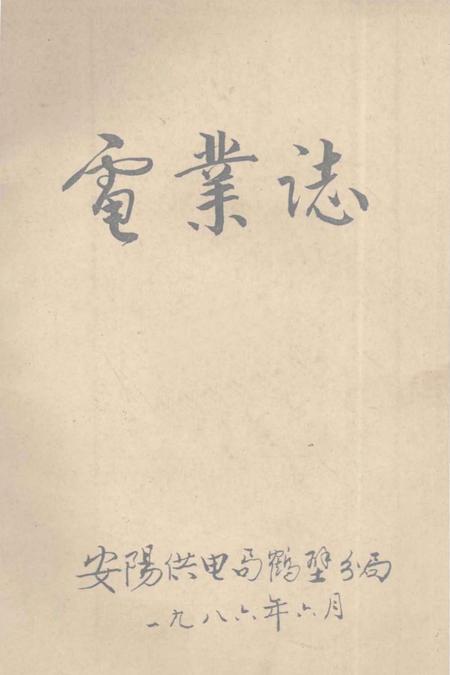 電業誌
安陽供电局鶴壁分局
一九八六年六月